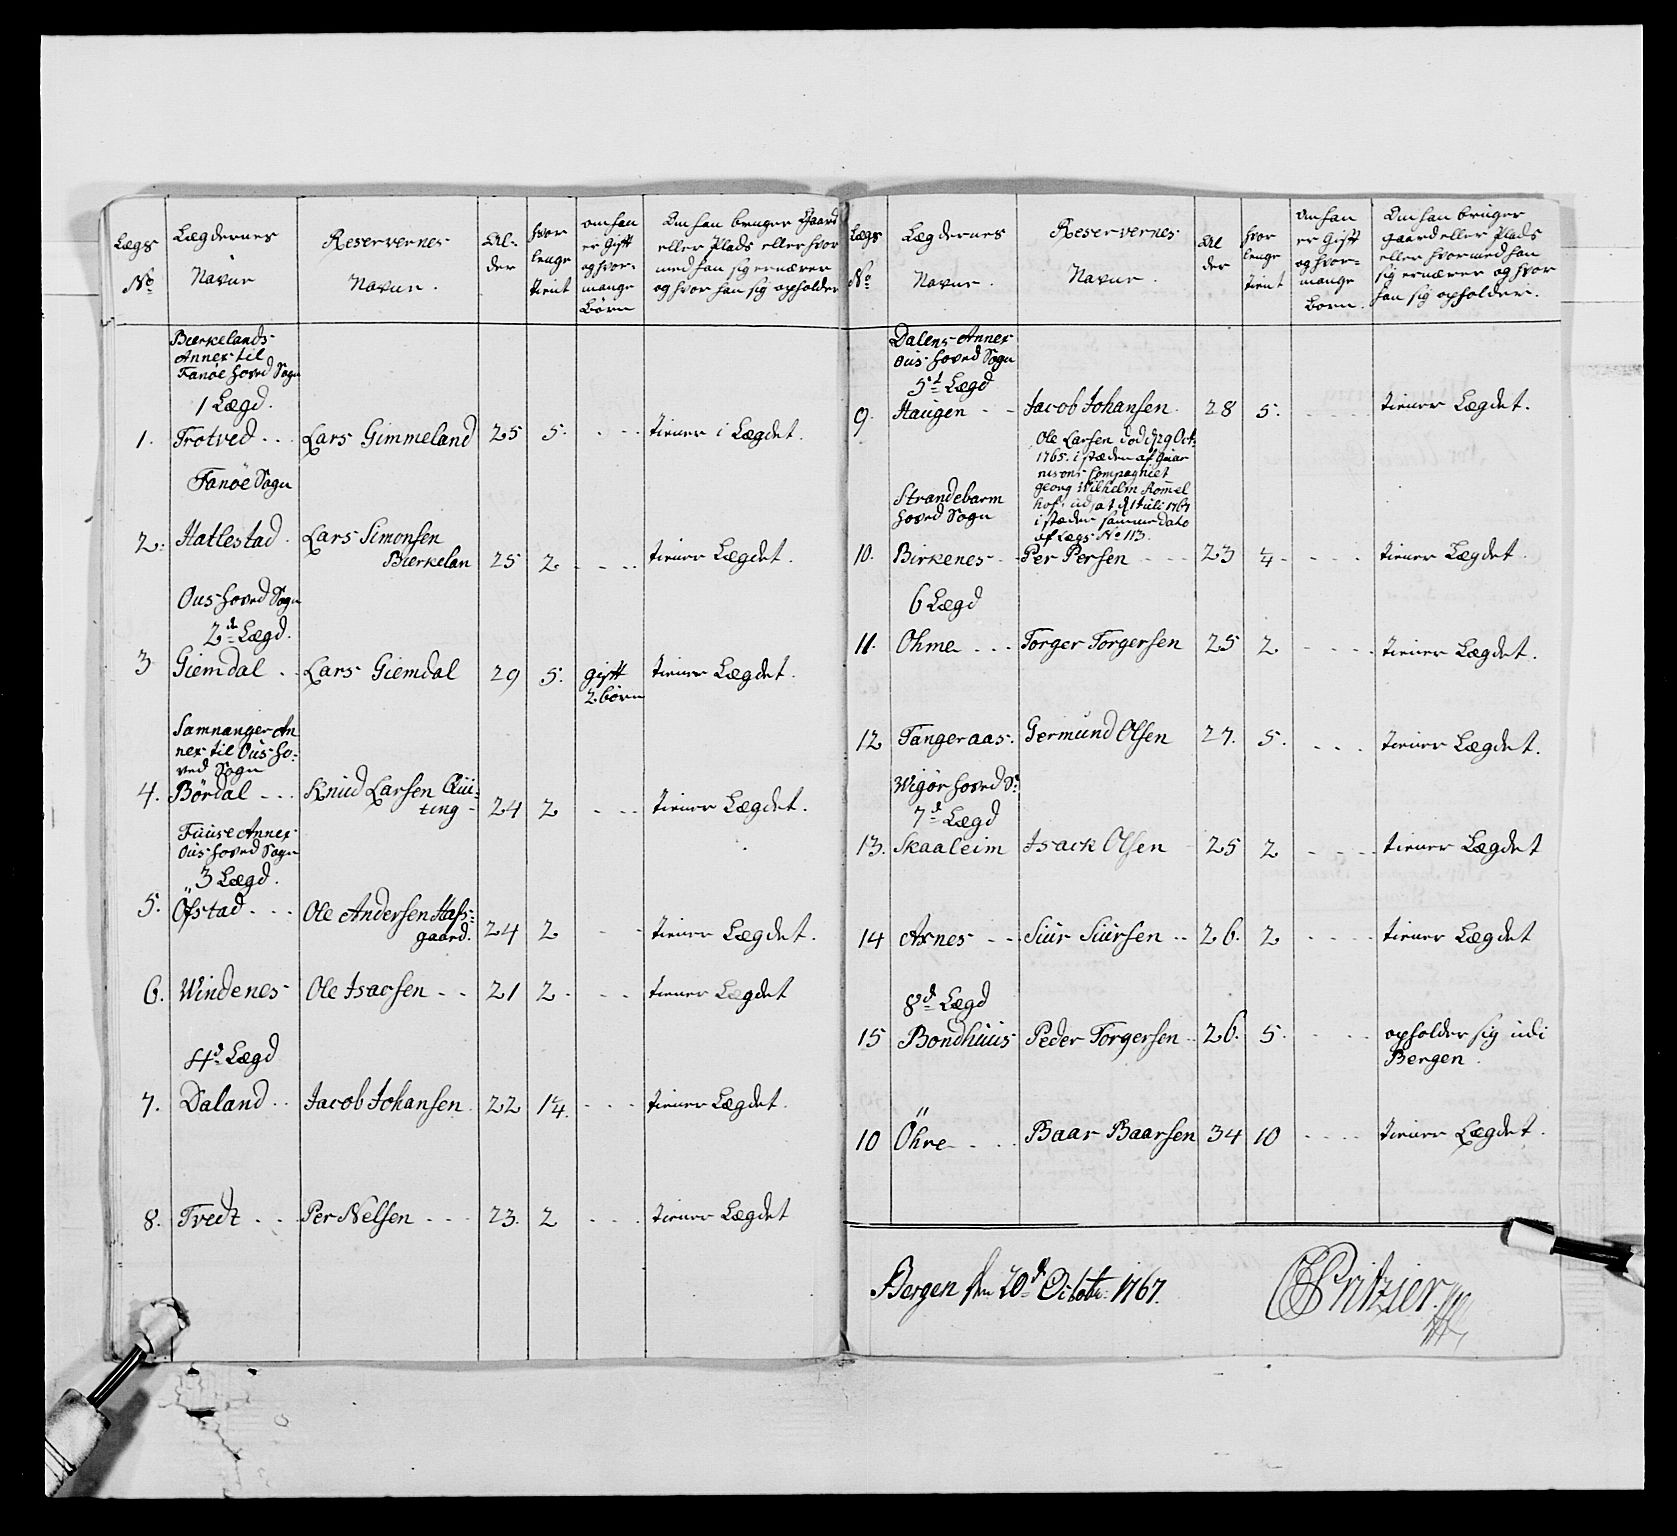 Lægs
No
Lægdernes
Navne
Reservernes
Navne.
Al-
der
hvor
lenge
tient
om han
er Gift
og hvor-
mange
Børn
Om han bruger Gaard
eller Plads eller hvor
med han sig ernærer
og hvor han sig opholder
Bierkelands
Annex til
Fanøe hoved Sogn
1 Lægd.
1. Trotved . . . Lars Gimmeland 25 5. . - - tiener i Lægdet.
Fanöe Sogn
2. Hatlestad . Lars Simonsen
Bierkelan 25 2 - - - - tiener Lægdet.
Ous hoved Sogn
2d Lægd.
3 Giemdal . . Lars Giemdal 29 5. gift tiener Lægdet.
2 børn
Samnanger An
nex til Ous ho-
ved Sogn
4. Bördal - - . Knud Larsen Qui-
ting - 24 2 - - - tiener Lægdet.
Fuuse Annex
Ous hoved Sogn
3 Lægd.
5. Öfstad - . . Ole Andersen Hass-
gaard. 24 2 - - tiener Lægdet.
6. Windenes - Ole Isacsen - - 21 2 - - - - tiener Lægdet
4d Lægd
7. Daland . . Jacob Johansen . 22 1¼. - - - tiener Lægdet.
8. Tredt . . . Per Nelsen - - - 23. 2 - - - tiener Lægdet
Lægs
No
Lægdernes
Navne.
Reservernes
Navne.
Al
der
hvor
lenge
tient
om han
er Gift
og hvor-
mange
børn.
Om han bruger
gaard eller Plads
eller hvormed han
sig ernærer og hvor
han sig opholder.
Dalens Annex
Ous hoved Sogn
5t Lægd
9. Haugen - - Jacob Johansen. 28 5. - - - - tiener Lægdet.
Ole Larsen død d 29 Oct:
1765. i stæden af Guar
nisons Compagniet
Georg Wilhelm Rommel
hof, udsat d 1 Juli 1767
i stæden samme dato
af Lægs No 113.
Strandebarm
hoved Sogn
10. Birkenes - - Per Persen - - - 23 ¼ - - - - tiener Lægdet.
6 Lægd
11. Ohme - . . Torger Torgersen 25 2 - - - - tiener Lægdet.
12 Tangeraas . Germund Olsen 27. 5. - - - tiener Lægdet.
Wigör hoved S:
7d Lægd
13. Skaaleim Isack Olsen 25 2 - - - - tiener Lægdet
14 Axnes - - Siur Siursen - - 26. 2 - - - - tiener Lægdet
8d Lægd
15 Bondhuus Peder Torgersen . . 26. 5. - - - - opholder sig udi
Bergen.
10 Öhre - . . . Baar Baarsen 34 10 - - - - tiener Lægdet.
Bergen den 20d Octobr: 1767.